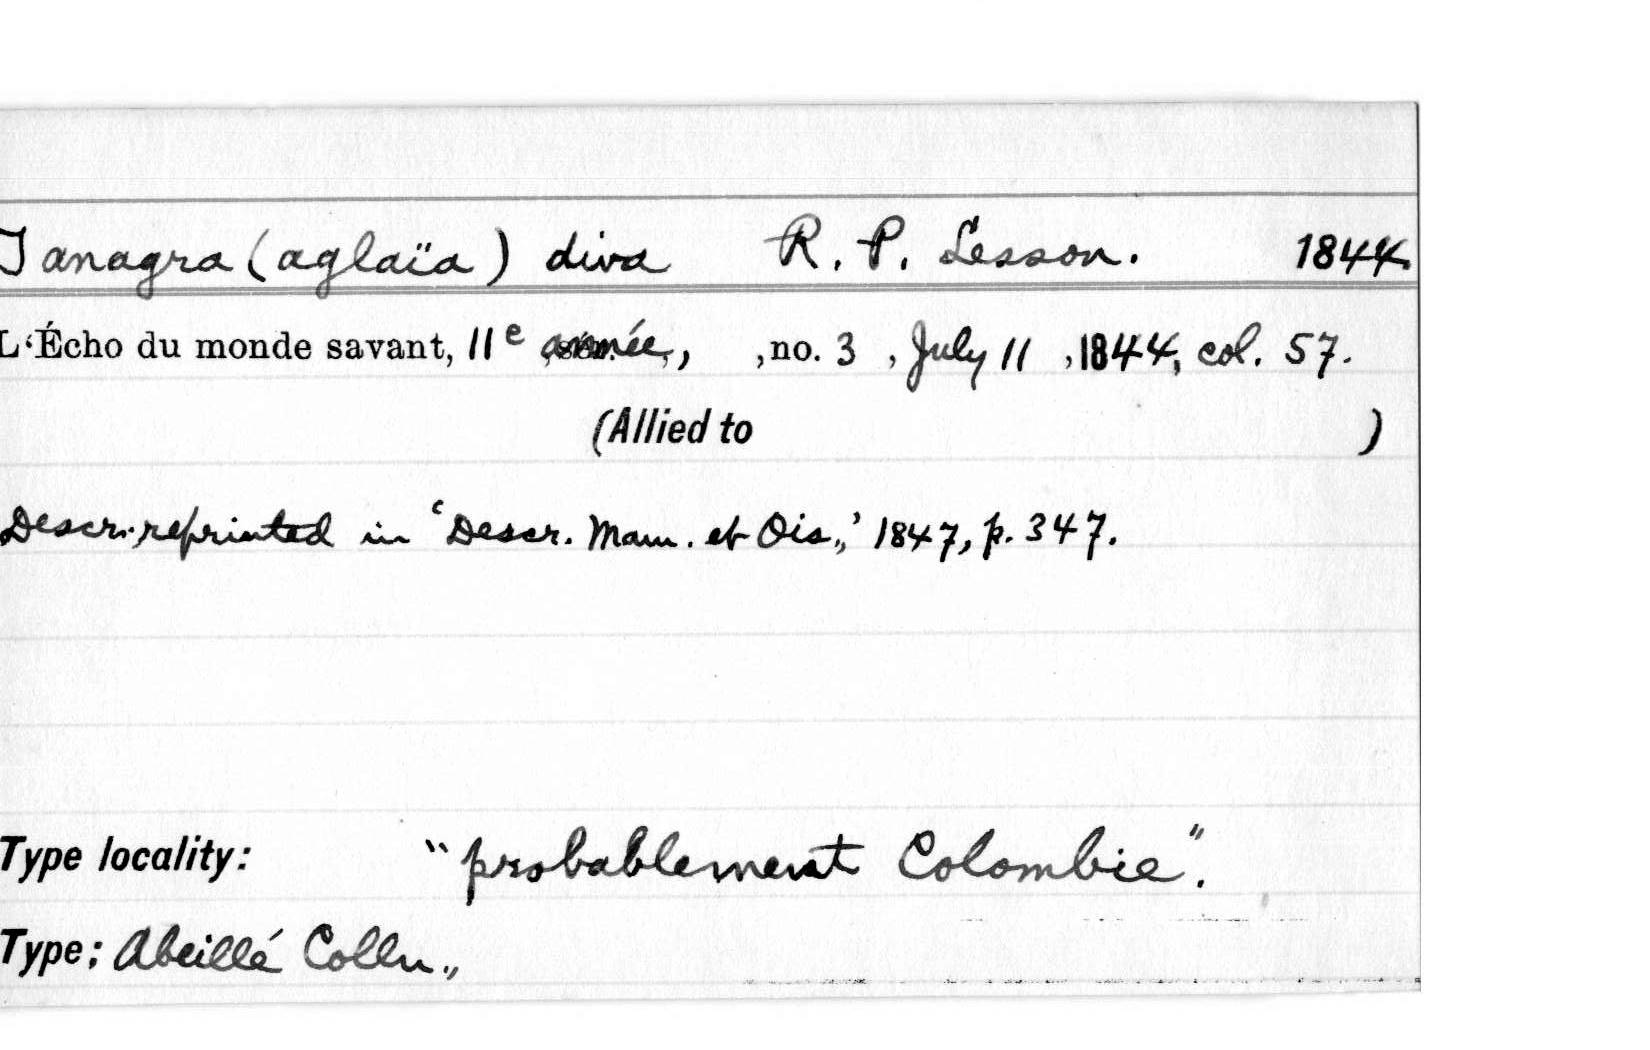 Tanagra (aglaïa) diva R. P. Lesson. 1844.
L'Écho du monde savant, 11e année, , no. 3 , July 11 , 1844, col. 57.
(Allied to )
Descr. reprinted in 'Descr. Mam. et Ois.,' 1847, p. 347.
Type locality: "probablement Colombie".
Type: Abeillé Colln.,